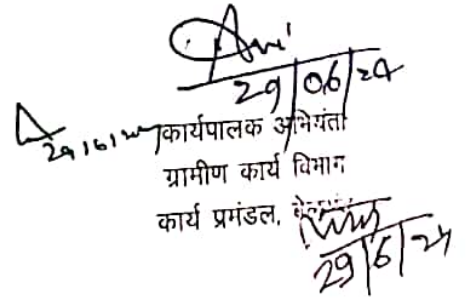 29/06/24
29/6/24
कार्यपालक अभियंता
ग्रामीण कार्य विभाग
कार्य प्रमंडल,
29/6/24